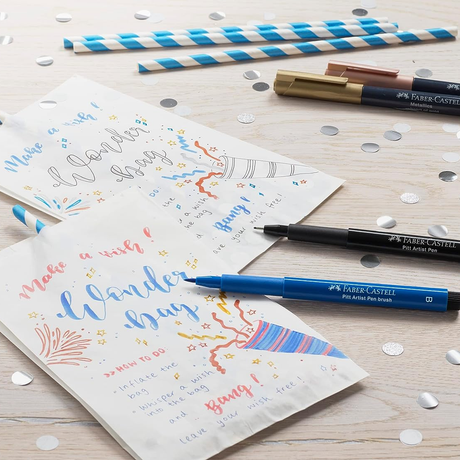 FABER-CASTELL
Metallics
FABER-CASTELL
Make a wish!
Wonder
bag
the
Bang!
are your wish free!
FABER-CASTELL
Pitt Artist Pen
FABER-CASTELL
Pitt Artist Pen brush
B
Make a wish!
Wonder
bag
>> HOW TO DO
• Inflate the
bag
• whisper a wish
into the bag
and Bang!
leave your wish free!